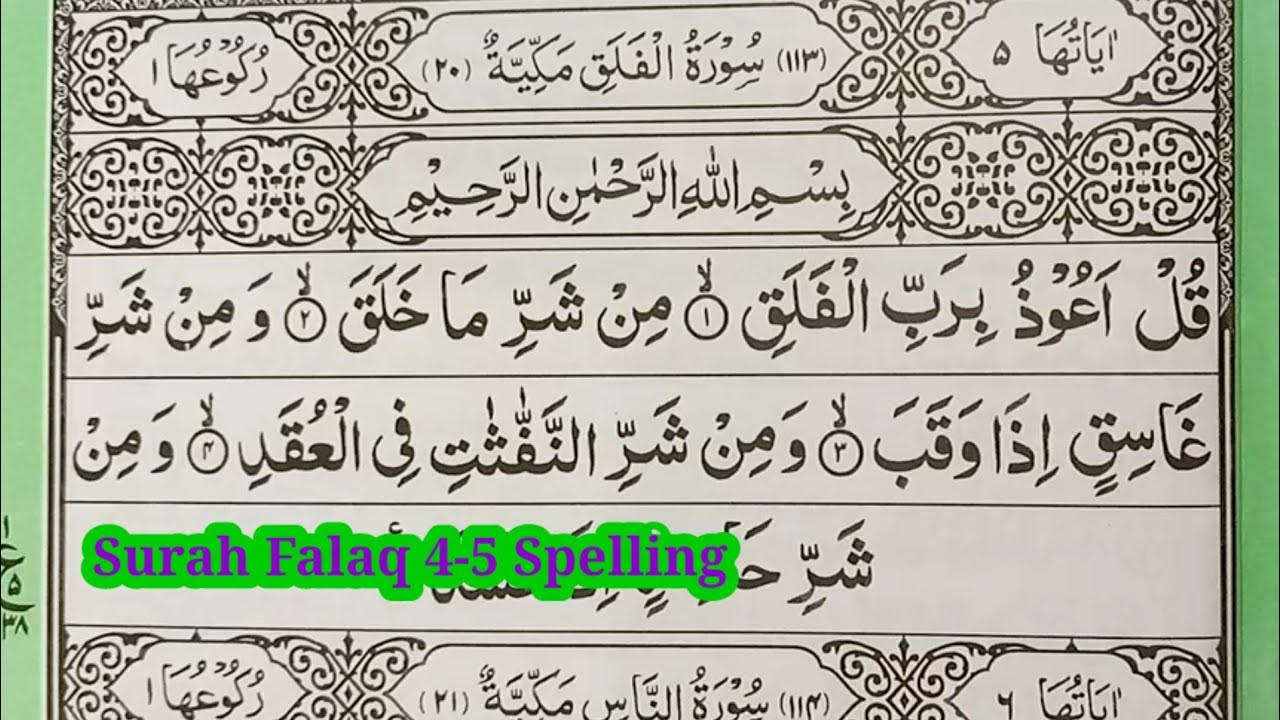 اٰيَاتُهَا ۵ (۱۱۳) سُوْرَةُ الْفَلَقِ مَكِّيَّةٌ (۲۰) رُكُوْعُهَا ۱
بِسْمِ اللهِ الرَّحْمٰنِ الرَّحِيْمِ
قُلْ اَعُوْذُ بِرَبِّ الْفَلَقِ ۙ۱ مِنْ شَرِّ مَا خَلَقَ ۙ۲ وَ مِنْ شَرِّ
غَاسِقٍ اِذَا وَقَبَ ۙ۳ وَ مِنْ شَرِّ النَّفّٰثٰتِ فِي الْعُقَدِ ۙ۴ وَ مِنْ
شَرِّ
Surah Falaq 4-5 Spelling
اٰيَاتُهَا ۶ (۱۱۴) سُوْرَةُ النَّاسِ مَكِّيَّةٌ (۲۱) رُكُوْعُهَا ۱